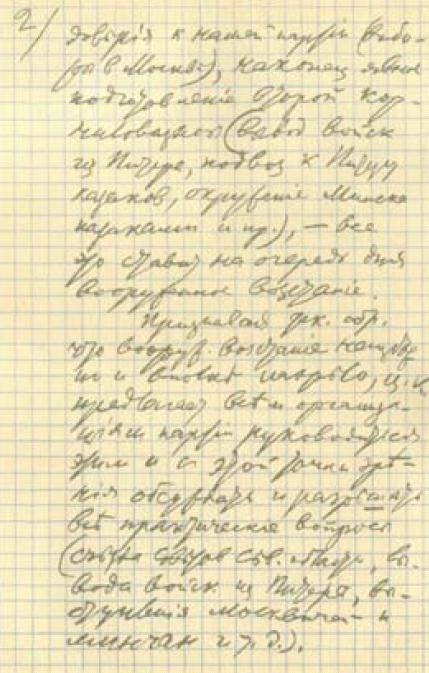 2/
довѣрія к нашей партіи (выбо-
ры в Москвѣ), наконец явное
подготовленіе второй кор-
ниловщины (вывод войск
из Питера, подвоз к Питеру
казаков, окруженіе Минска
казаками и пр.), — все
это ставит на очередь дня
вооруженное возстаніе.
Признавая так. обр.
что вооруж. возстаніе неизбѣж
но и вполнѣ назрѣло, ЦК
предлагает всѣм организа-
ціям партіи руководиться
этим и с этой точки зрѣ-
нія обсуждать и разрѣшать
всѣ практическіе вопросы
(съѣзда Совѣтов Сѣв. области, вы-
вода войск из Питера, вы-
ступленія москвичей и
минчан и т. д.).